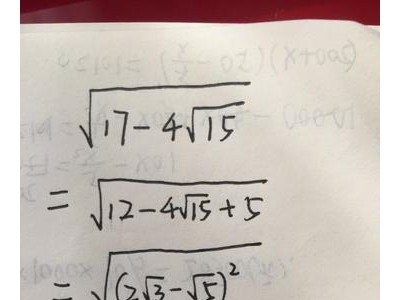 √(17-4√15)
= √(12-4√15+5)
= √((2√3-√5)²)